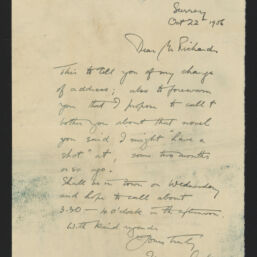 Surrey
Oct 22nd 1906
Dear Mr Richards
This to tell you of my change
of address; also to forewarn
you that I propose to call &
bother you about that novel
you said I might have a
"shot" at, some two months
or so ago.
Shall be in town on Wednesday
and hope to call about
3.30 – 4 o'clock in the afternoon.
With kind regards
Yours truly